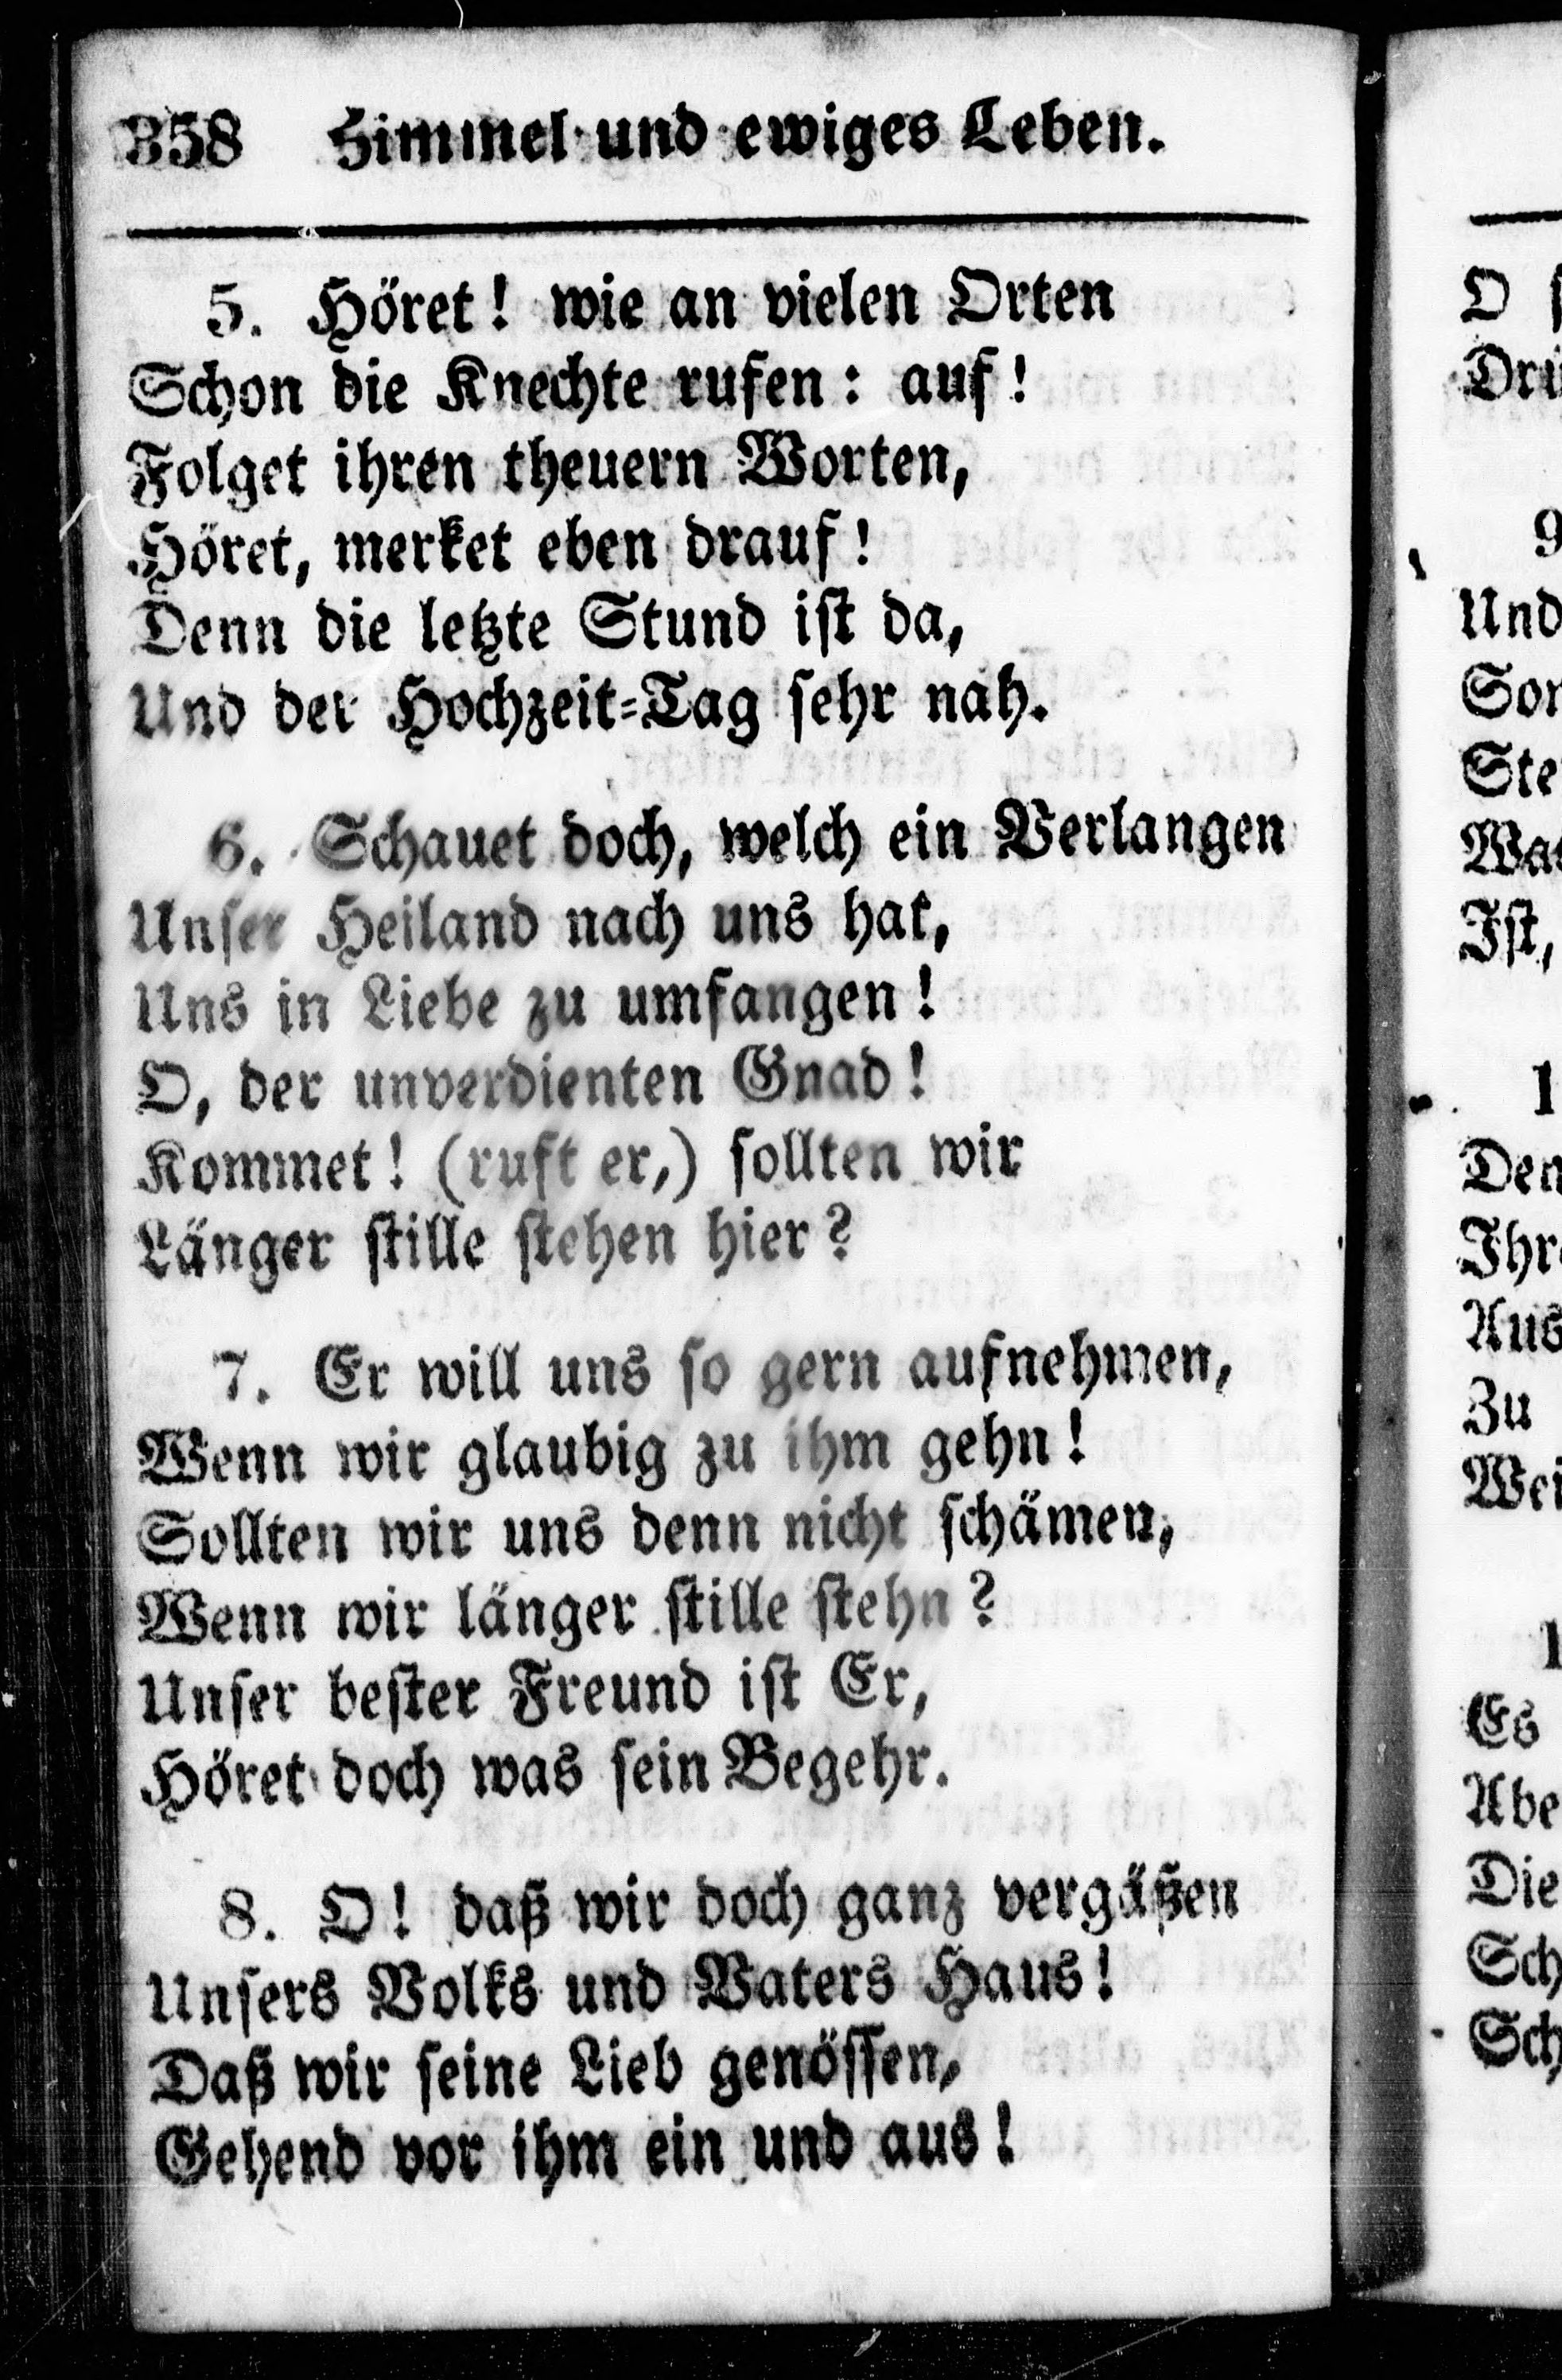 358 Himmel und ewiges Leben.
5. Höret! wie an vielen Orten
Schon die Knechte rufen: auf!
Folget ihren theuern Worten,
Höret, merket eben drauf!
Denn die letzte Stund ist da,
Und der Hochzeit-Tag sehr nah.
6. Schauet doch, welch ein Verlangen
Unser Heiland nach uns hat,
Uns in Liebe zu umfangen!
O, der unverdienten Gnad!
Kommet! (ruft er,) sollten wir
Länger stille stehen hier?
7. Er will uns so gern aufnehmen,
Wenn wir glaubig zu ihm gehn!
Sollten wir uns denn nicht schämen,
Wenn wir länger stille stehn?
Unser bester Freund ist Er,
Höret doch was sein Begehr.
8. O! daß wir doch ganz vergäßen
Unsers Volks und Vaters Haus!
Daß wir seine Lieb genössen,
Gehend vor ihm ein und aus!
O
9
Und
Ist,
1
Zu
1
Es
Die